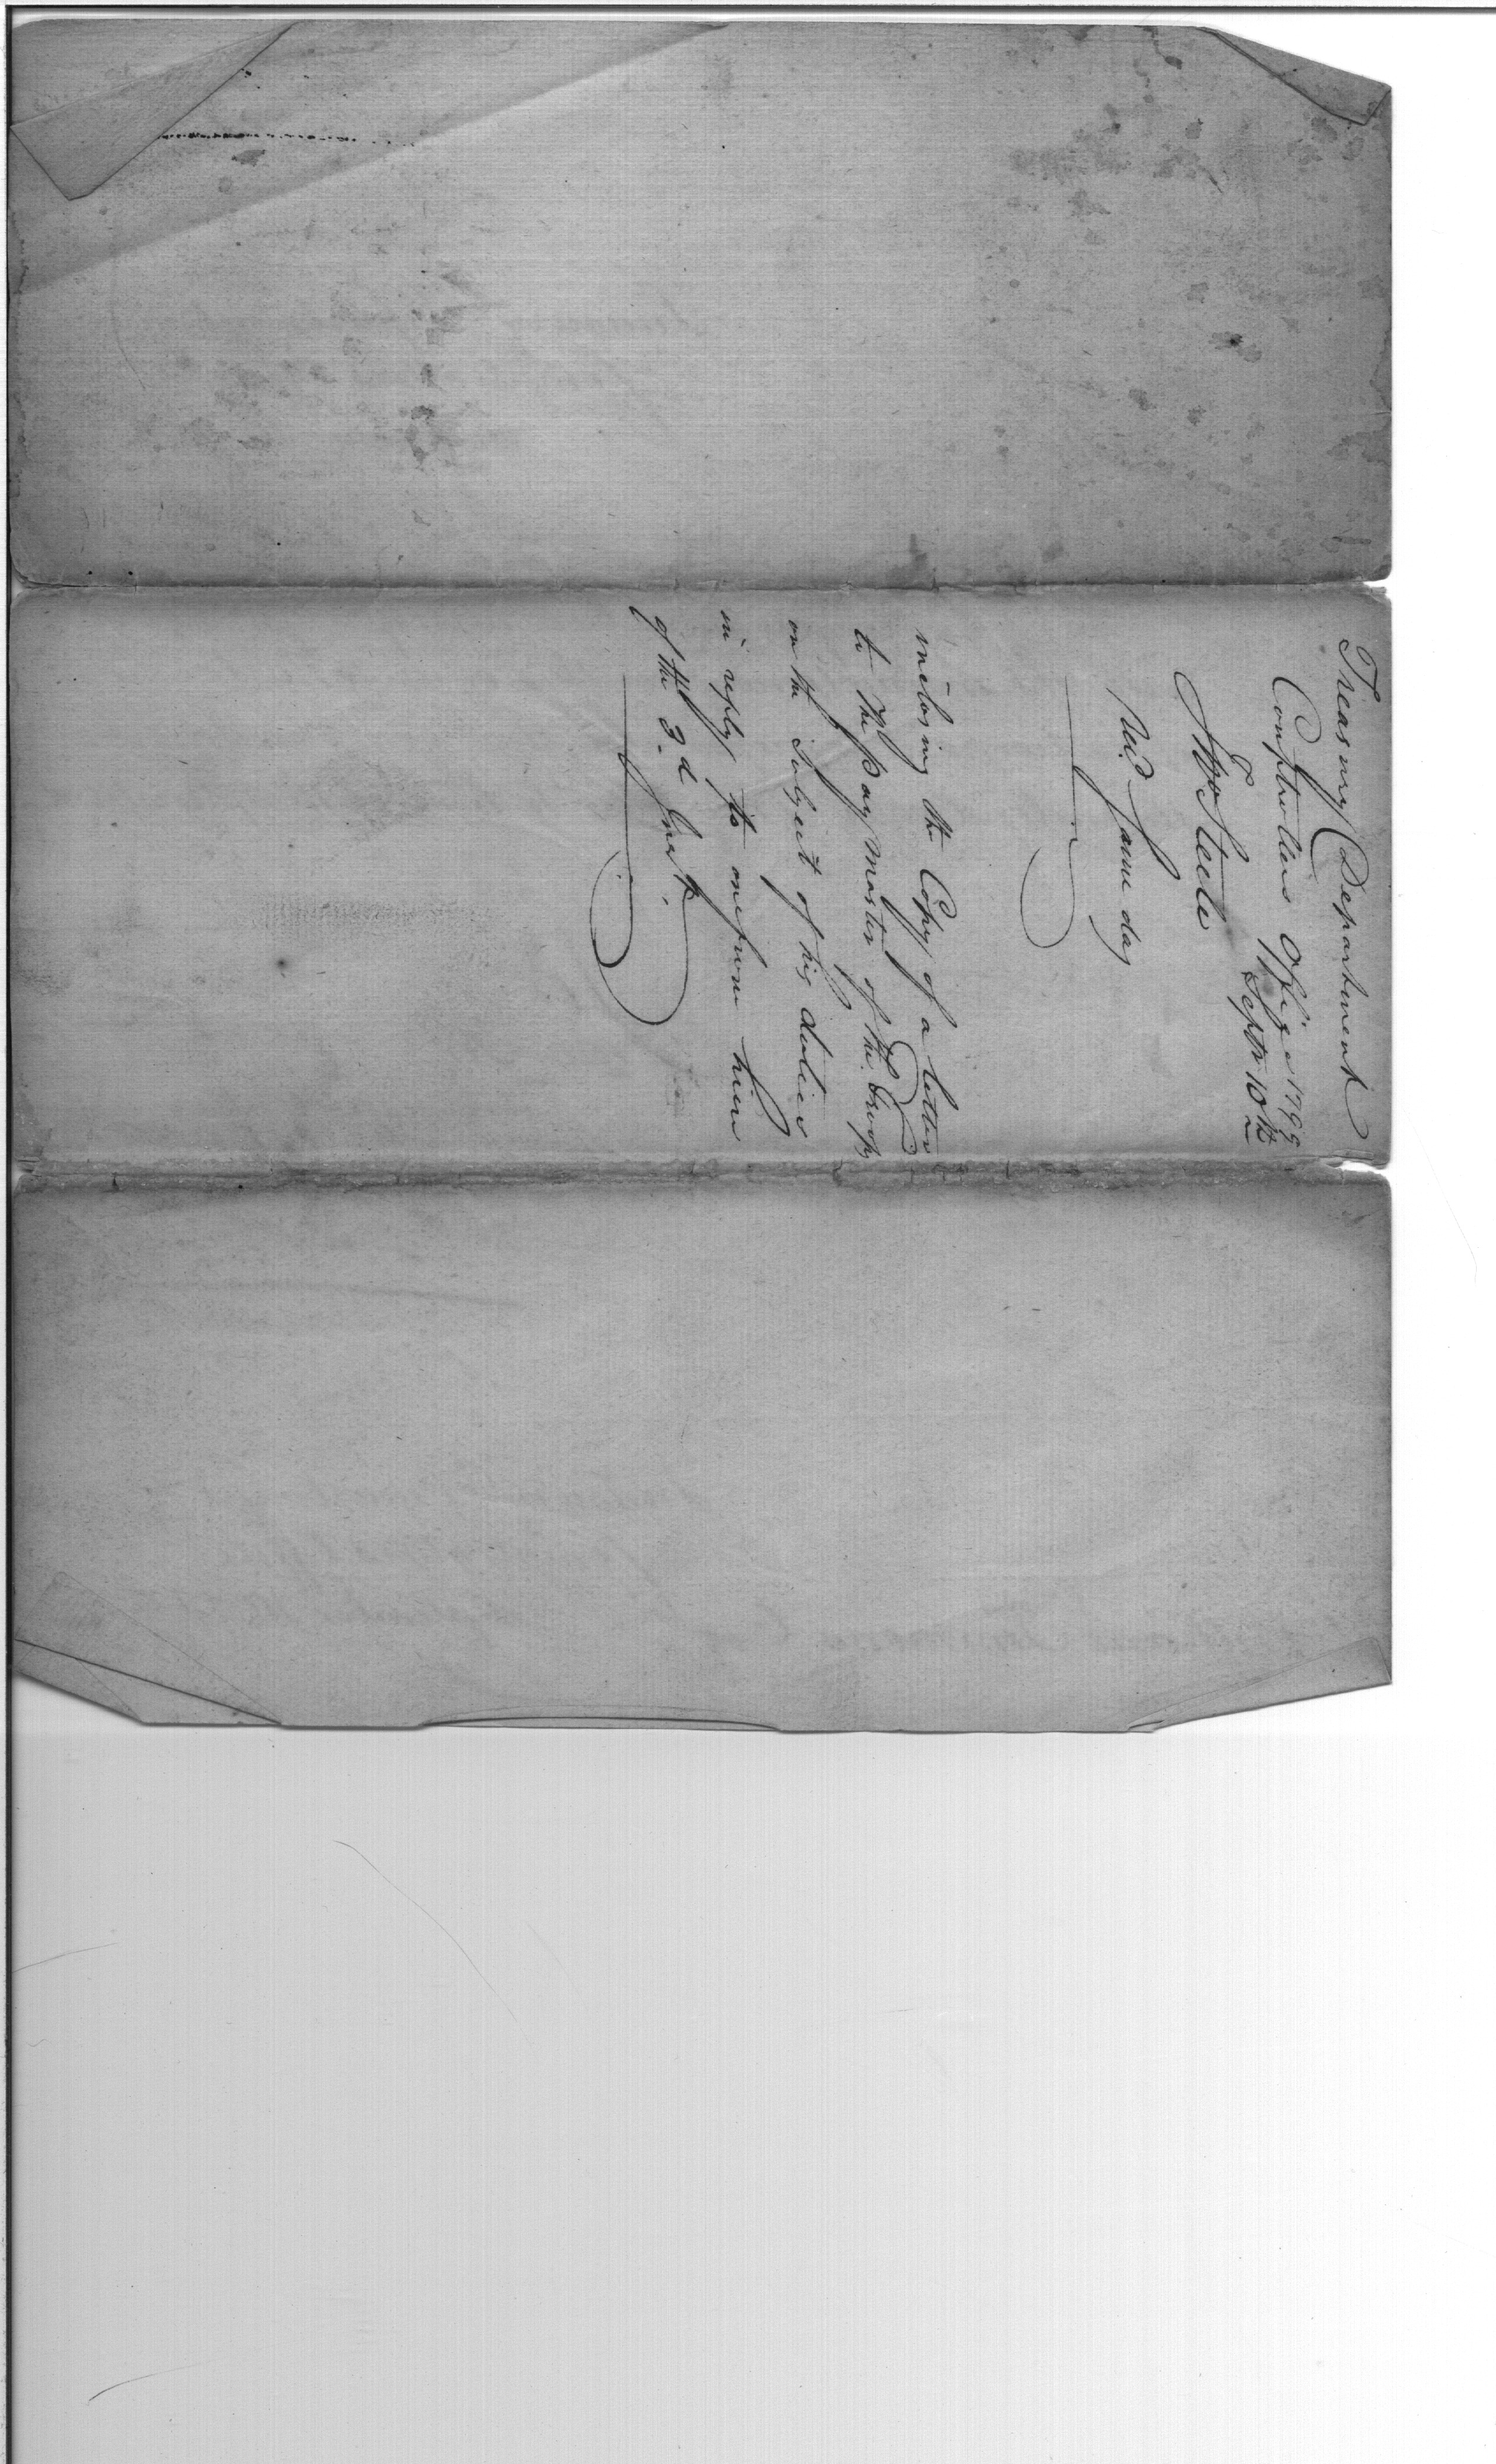 Treasury Department
Comptrollers Office 1799
Septr 10th
Jno Steele
Recd same day
inclosing the Copy of a letter
to the Pay Master of the Troops
on the Subject of his duties
in reply to one from him
of the 3d Inst.